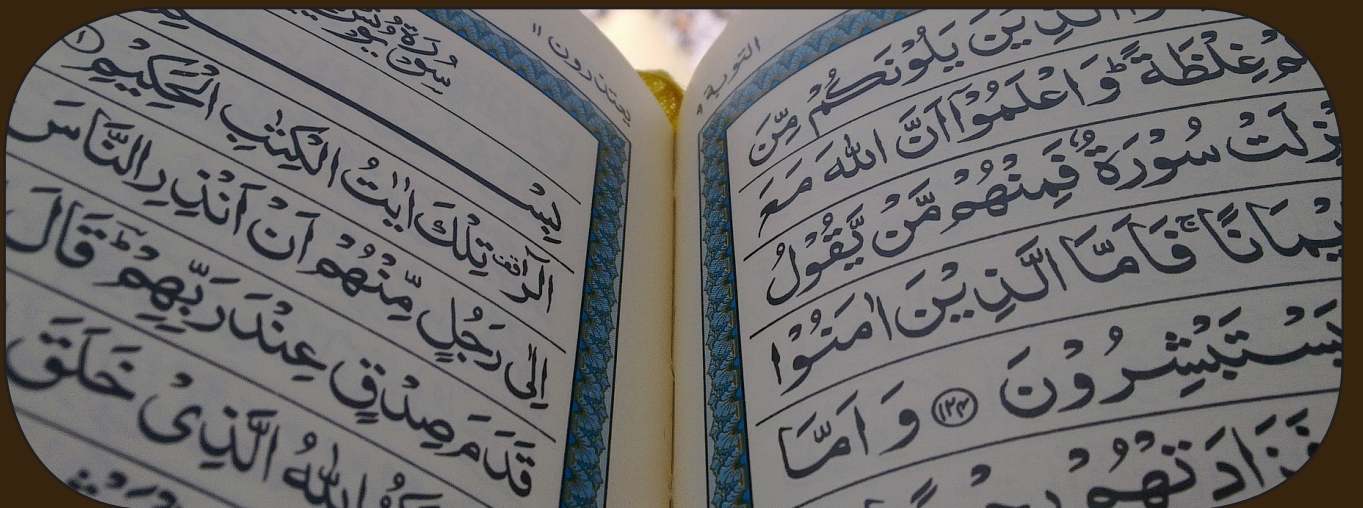 التوبة ٩
الَّذِيْنَ يَلُوْنَكُمْ مِّنَ
غِلْظَةً ؕ وَاعْلَمُوْۤا اَنَّ اللّٰهَ مَعَ
سُوْرَةٌ فَمِنْهُمْ مَّنْ يَّقُوْلُ
فَاَمَّا الَّذِيْنَ اٰمَنُوْا
يَسْتَبْشِرُوْنَ ﴿١٢٤﴾ وَاَمَّا
فَزَادَتْهُمْ
يعتذرون ١١
سُوْرَةُ يُوْنُسَ
بِسْ
الٓرٰ ۫ تِلْكَ اٰيٰتُ الْكِتٰبِ الْحَكِيْمِ ﴿١﴾
اِلٰى رَجُلٍ مِّنْهُمْ اَنْ اَنْذِرِ النَّاسَ
قَدَمَ صِدْقٍ عِنْدَ رَبِّهِمْ ؕ قَالَ
اللّٰهُ الَّذِىْ خَلَقَ